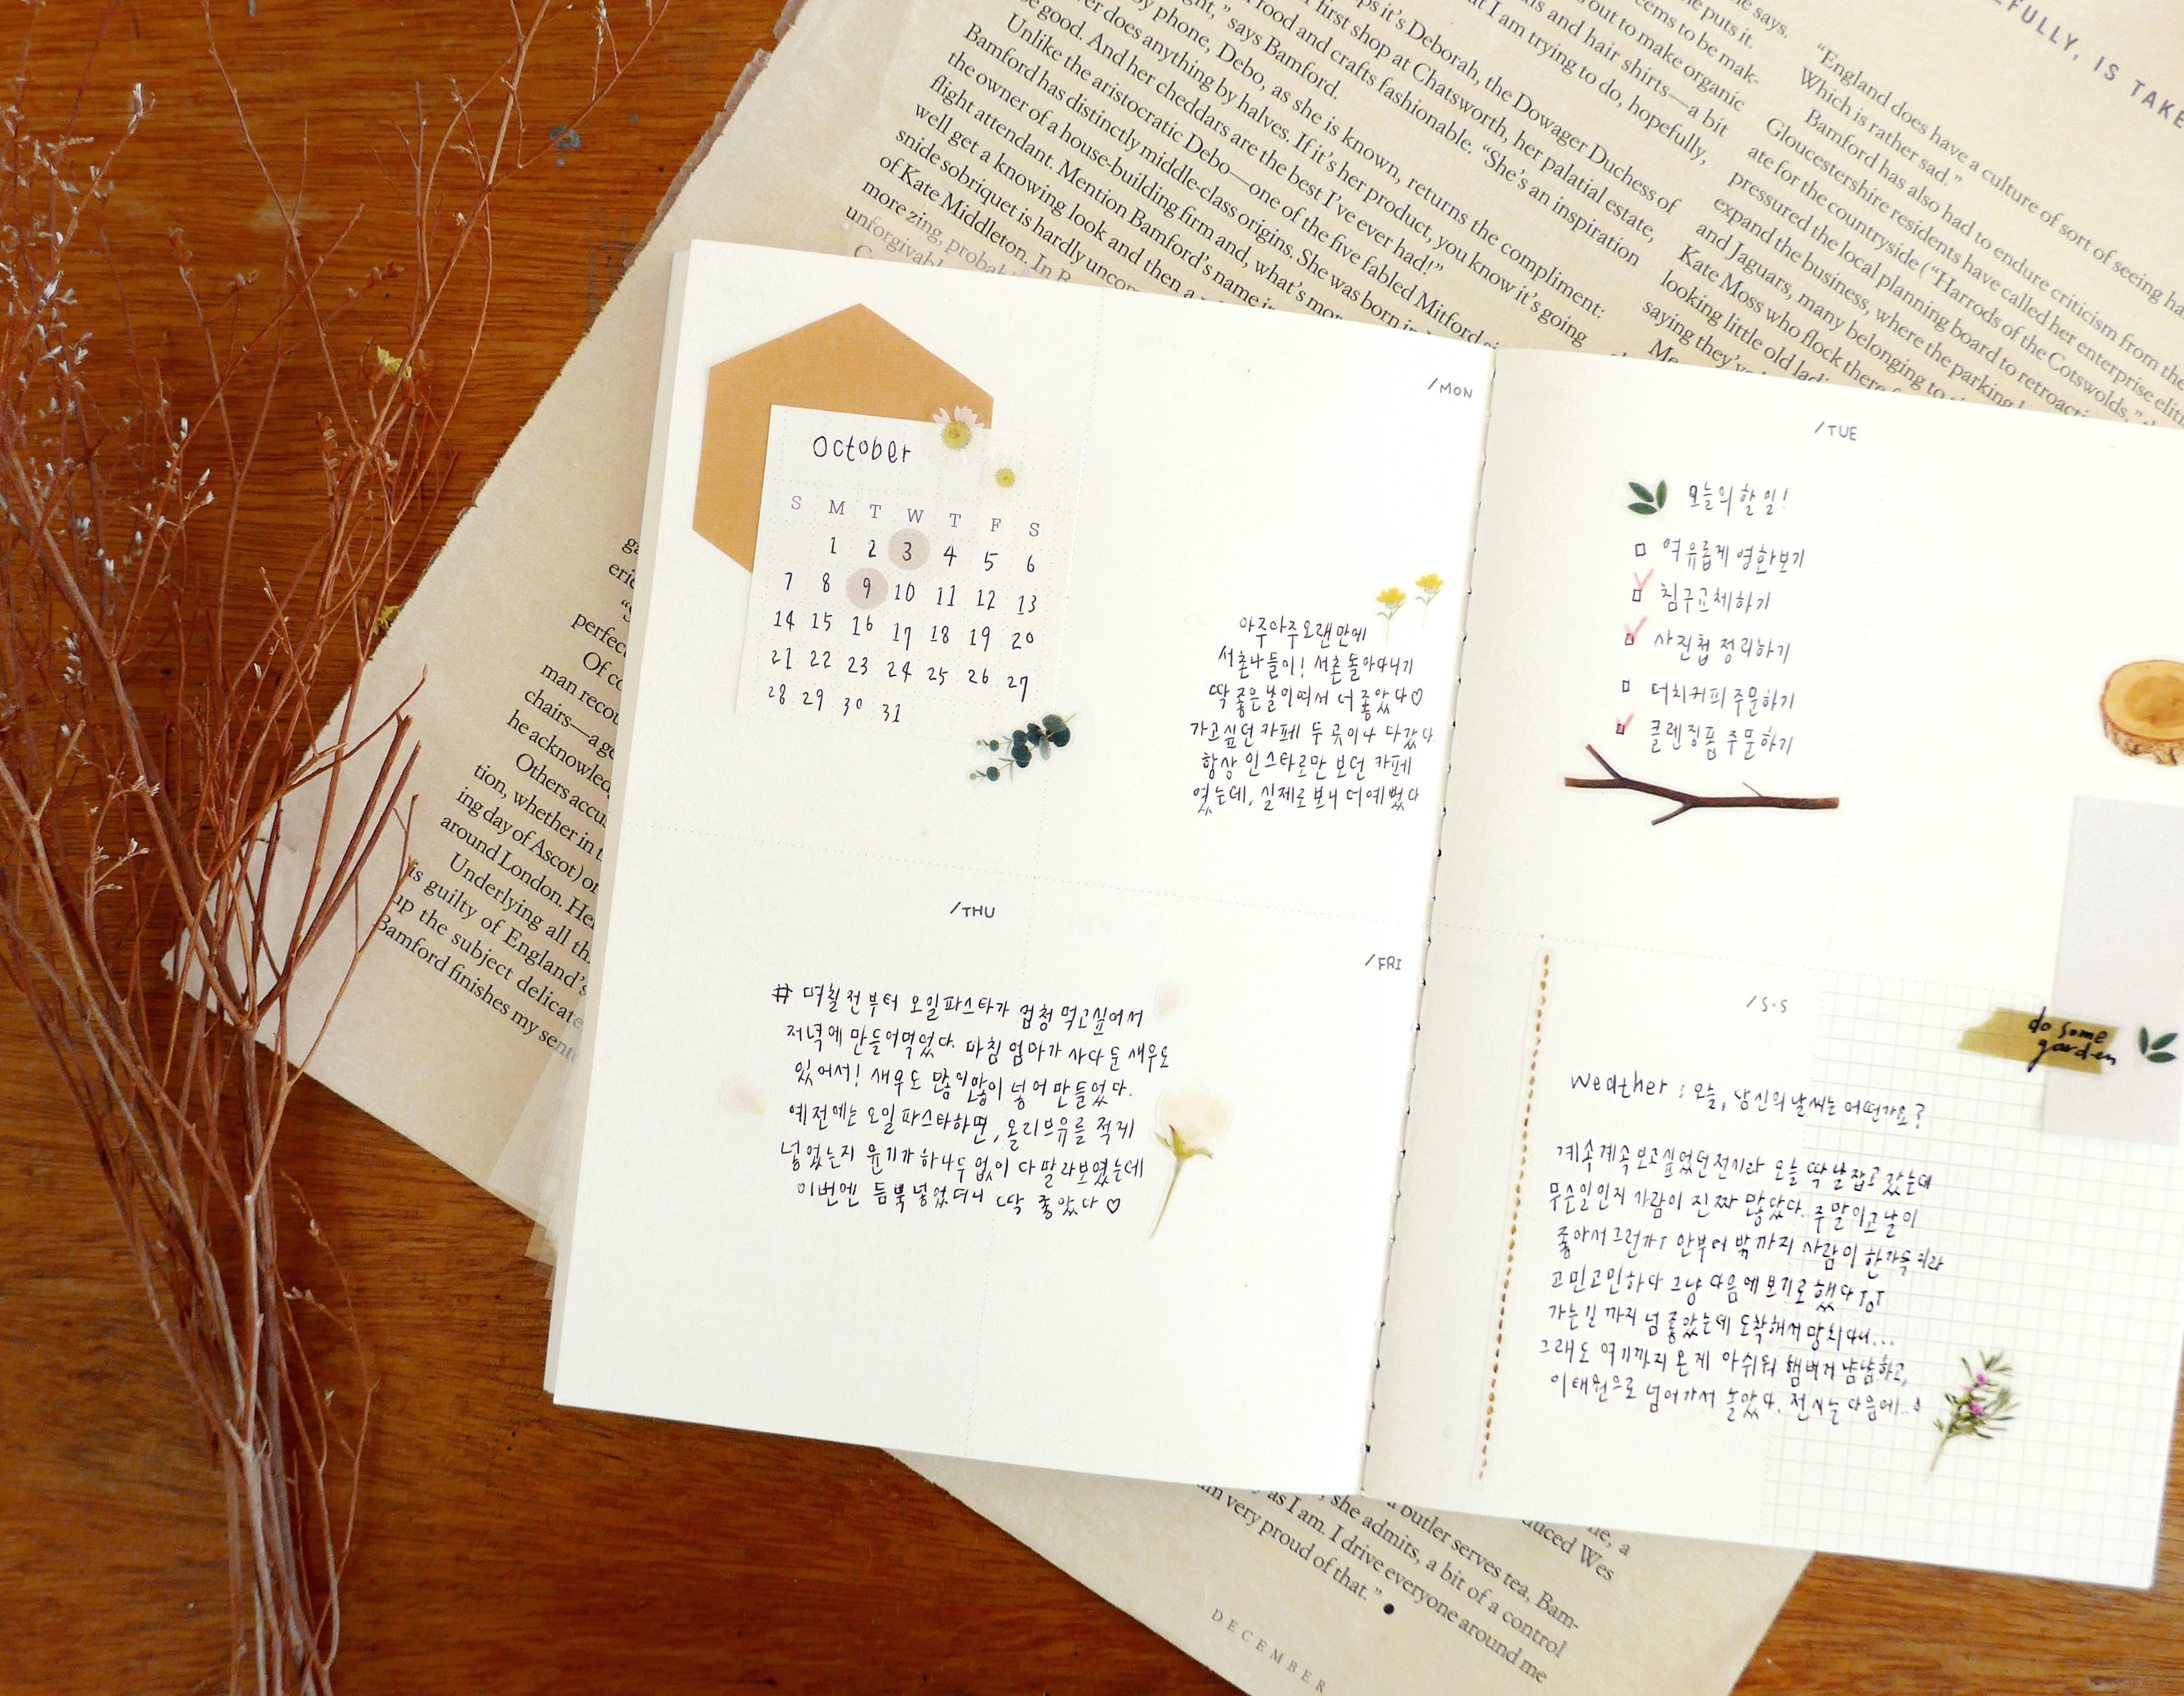 October
S M T W T F S
1 2 3 4 5 6
7 8 9 10 11 12 13
14 15 16 17 18 19 20
21 22 23 24 25 26 27
28 29 30 31
/MON
아주아주오랜만에
서촌나들이! 서촌돌아다니기
딱좋은날이여서 더좋았다♡
가고싶던 카페 두 곳이나 다갔다.
항상 인스타로만 보던 카페
였는데, 실제로보니 더예뻤다
/TUE
오늘의할일!
여유롭게 영화보기
침구교체하기
사진첩 정리하기
더치커피주문하기
클렌징폼주문하기
/THU
# 며칠전부터 오일파스타가 엄청 먹고싶어서
저녁에 만들어먹었다. 마침 엄마가 사다둔 새우도
있어서! 새우도 많이많이 넣어만들었다.
예전에는 오일파스타하면, 올리브유를 적게
넣었는지 윤기가하나두없이 다말라보였는데
이번엔 듬북넣었더니 딱 좋았다♡
/FRI
/S·S
do some
garden
Weather : 오늘, 당신의날씨는어떤가요?
계속계속보고싶었던전시라 오늘 딱날잡고갔는데
무슨일인지 사람이 진짜 많았다. 주말이고날이
좋아서그런가? 안부터 밖까지 사람이 한가득이라
고민고민하다 그냥 다음에보기로했다ToT
가는길까지 넘좋았는데 도착해서망치다니...
그래도 여기까지온게 아쉬워 햄버거냠냠하고,
이태원으로 넘어가서 놀았다. 전시는다음에..
ght," says Bamford.
by phone, Debo, as she is known, returns the compliment:
er does anything by halves. If it's her product, you know it's going
be good. And her cheddars are the best I've ever had!"
Unlike the aristocratic Debo—one of the five fabled Mitford
Bamford has distinctly middle-class origins. She was born in
the owner of a house-building firm and, what's mor
flight attendant. Mention Bamford's name in
well get a knowing look and then a
snide sobriquet is hardly uncom
of Kate Middleton. In B
more zing, probabl
unforgivabl
food and crafts fashionable. "She's an inspiration
first shop at Chatsworth, her palatial estate,
it's Deborah, the Dowager Duchess of
I am trying to do, hopefully,
and hair shirts—a bit
out to make organic
seems to be mak-
he puts it.
she says.
EFULLY, IS TAKE
"England does have a culture of sort of seeing ha
Which is rather sad."
Bamford has also had to endure criticism from the
Gloucestershire residents have called her enterprise elitis
ate for the countryside ("Harrods of the Cotswolds,"
pressured the local planning board to retroacti
expand the business, where the parking l
and Jaguars, many belonging to
Kate Moss who flock there f
looking little old ladi
saying they've
perfec
Of co
man recou
chairs—a ge
he acknowled
Others accu
tion, whether in t
ing day of Ascot) or
around London. He
Underlying all th
is guilty of England's
up the subject delicate
Bamford finishes my sente
a butler serves tea, Bam-
she admits, a bit of a control
as I am. I drive everyone around me
am very proud of that."
duced Wes
DECEMBER